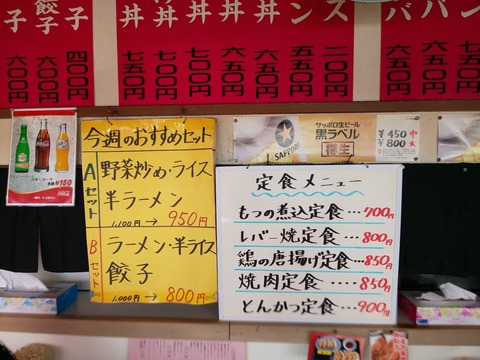 餃子 子 丼 丼 丼 丼 丼 ス ン バ バ ン
六〇〇円 六〇〇円 四〇〇円 七五〇円 七五〇円 七〇〇円 六五〇円 六五〇円 六五〇円 二〇〇円
¥150
今週のおすすめセット
Aセット
野菜炒め・ライス
半ラーメン
1,100円→950円
Bセット
ラーメン・半ライス
餃子
1,000円→800円
サッポロ生ビール
黒ラベル
樽生
SAPPORO
¥450 中
¥800 大
定食メニュー
もつの煮込定食…700円
レバー焼定食…800円
鶏の唐揚げ定食…850円
焼肉定食……850円
とんかつ定食…900円